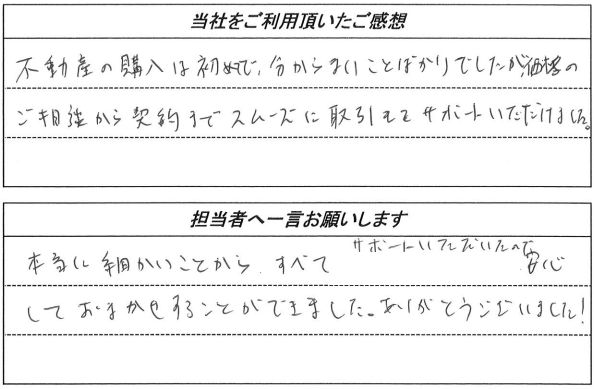 当社をご利用頂いたご感想
不動産の購入は初めで、分からまいことばかりでしたが、価格の
ご相談から契約までスムーズに取引もとサポートいただけました。
担当者へ一言お願いします
サポートいただいたので
本当に細かいことから、すべて 安心
しておまかせすることができました。ありがとうございました!